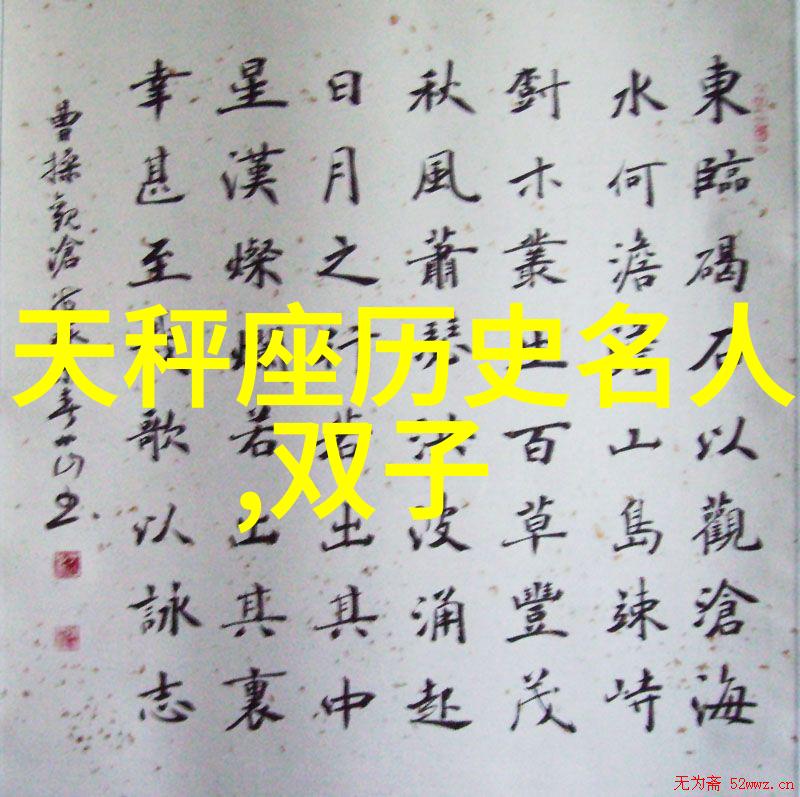 東臨碣石以觀滄海
水何澹澹山島竦峙
樹木叢生百草豐茂
秋風蕭瑟洪波涌起
日月之行若出其中
星漢燦爛若出其裏
幸甚至哉歌以詠志
曹操觀滄
天秤座历史名人
,双子
无为斋 52wwz.cn